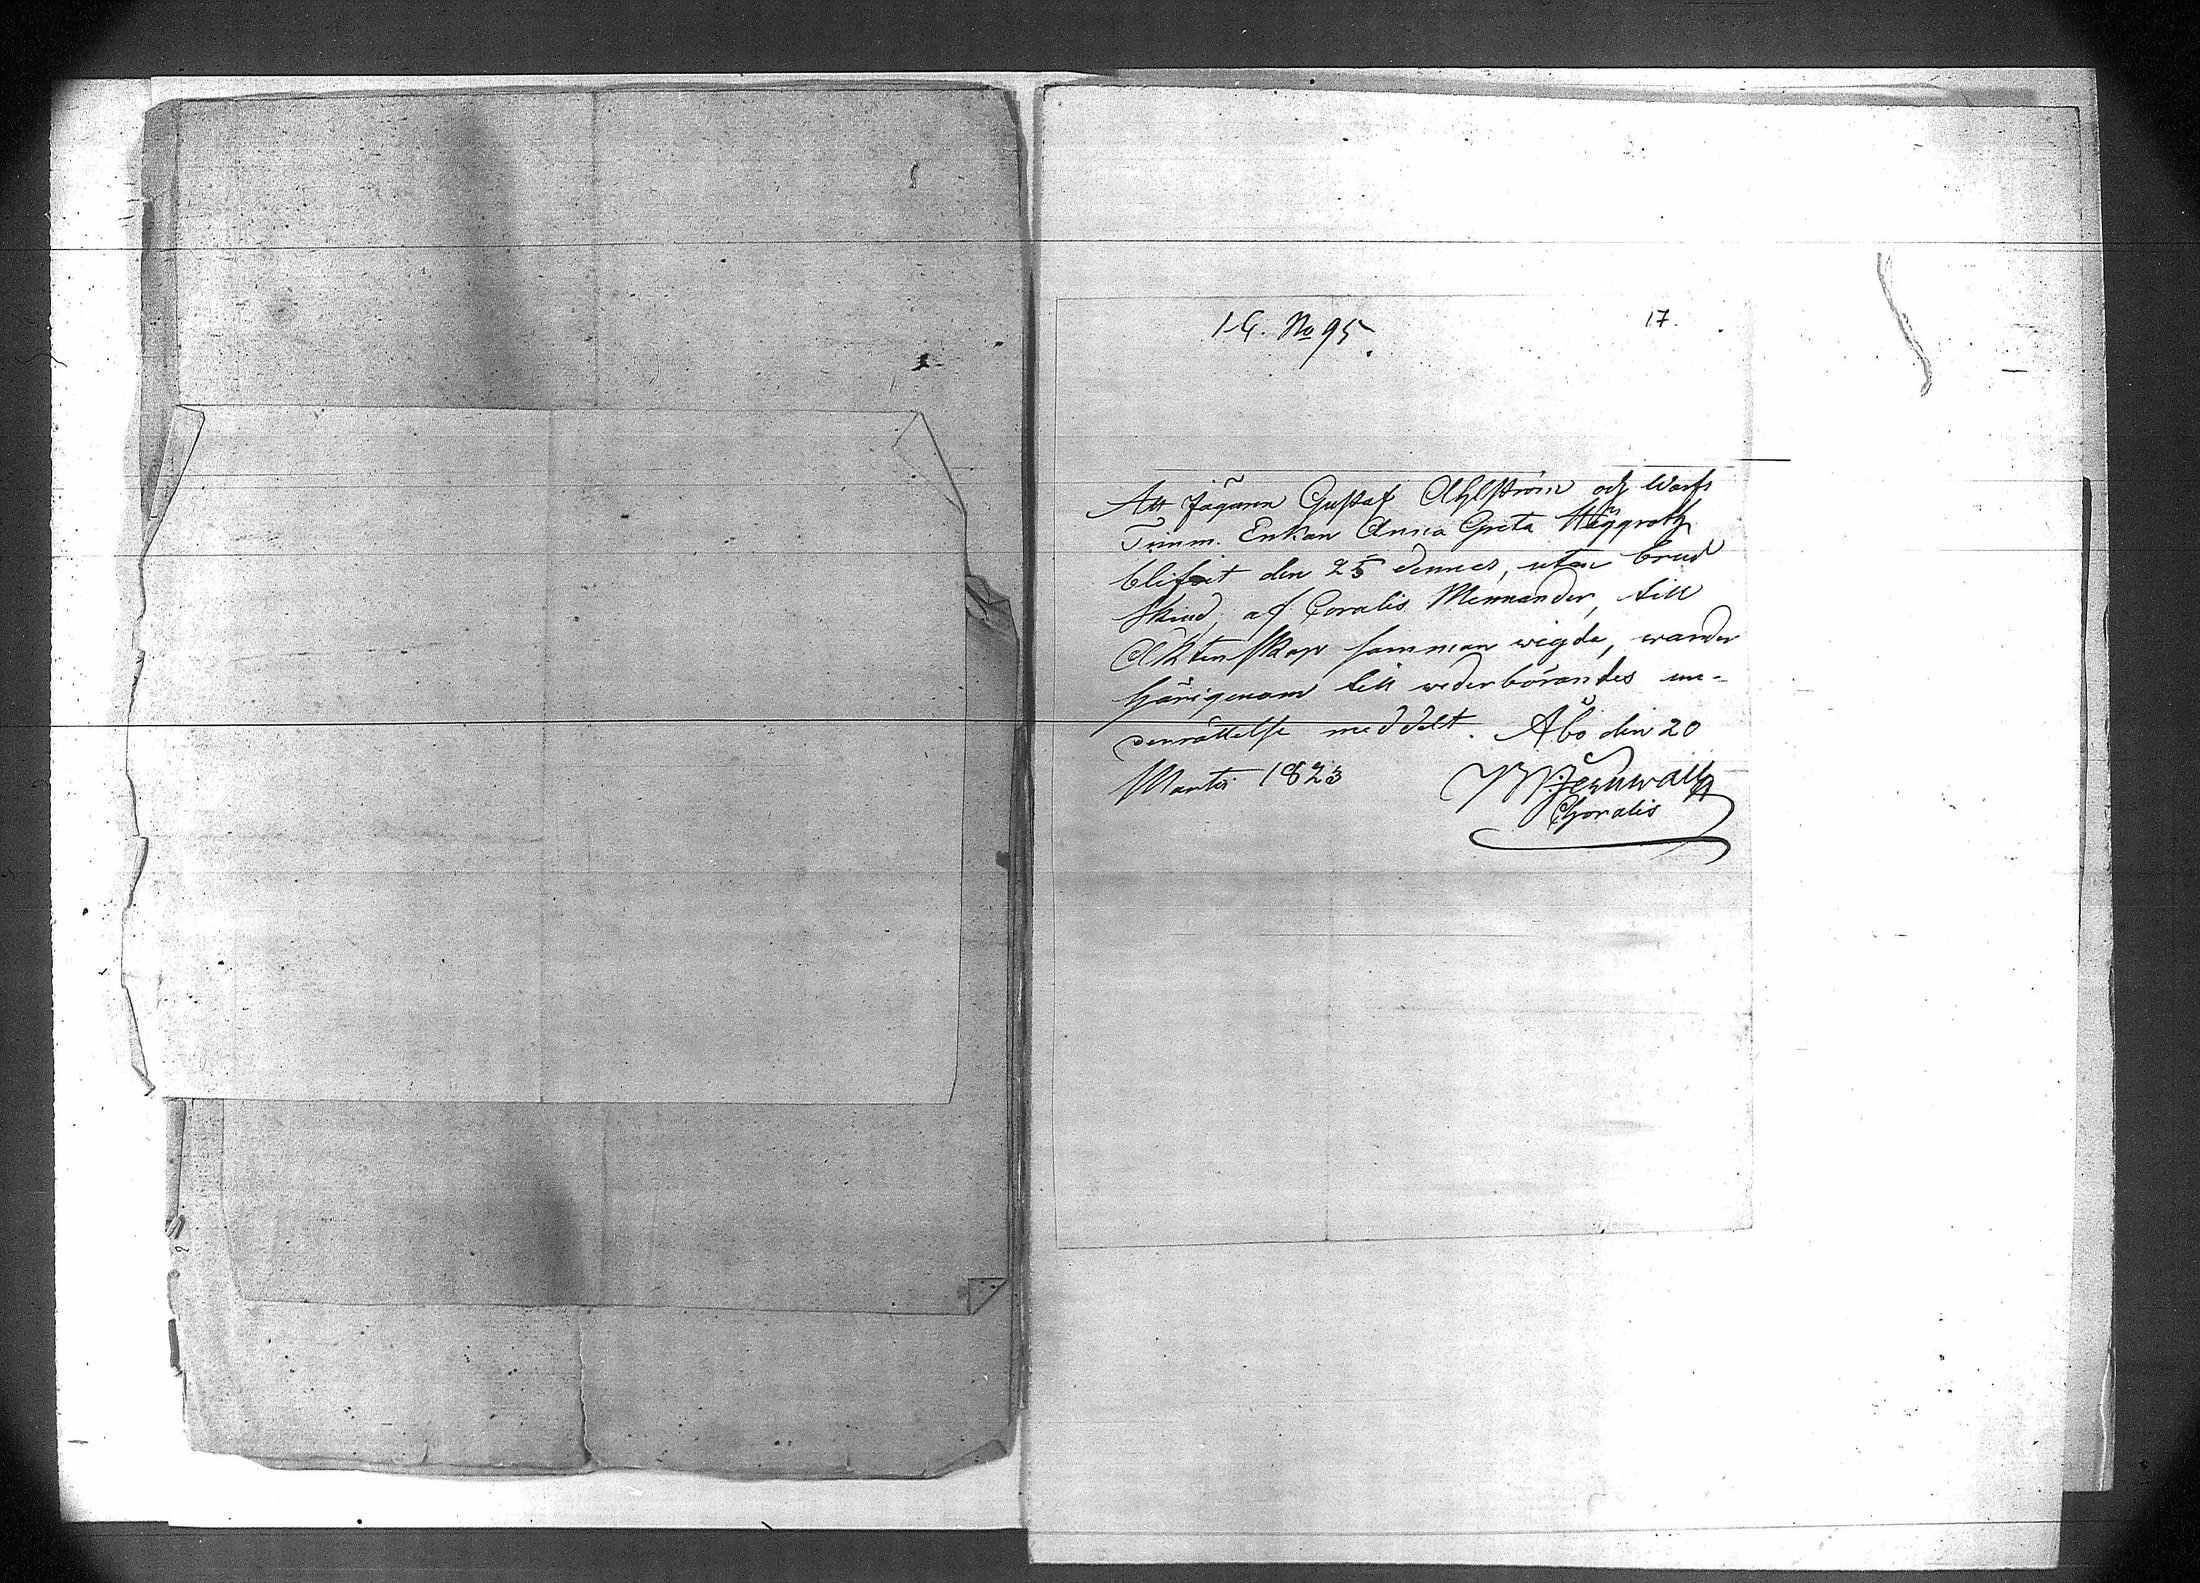 I G. No 95.
17.
Att Jägaren Gustaf Ahlström och Warfs
Timm. Enkan Anna Greta Häggroth
blifvit den 25 dennes, utan brud
skrud, af Coralis Mennander, till
Äktenskap samman wigde, warder
härigenom till wederbörandes un-
derrättelse meddelt. Åbo den 20
Martii 1823
Choralis